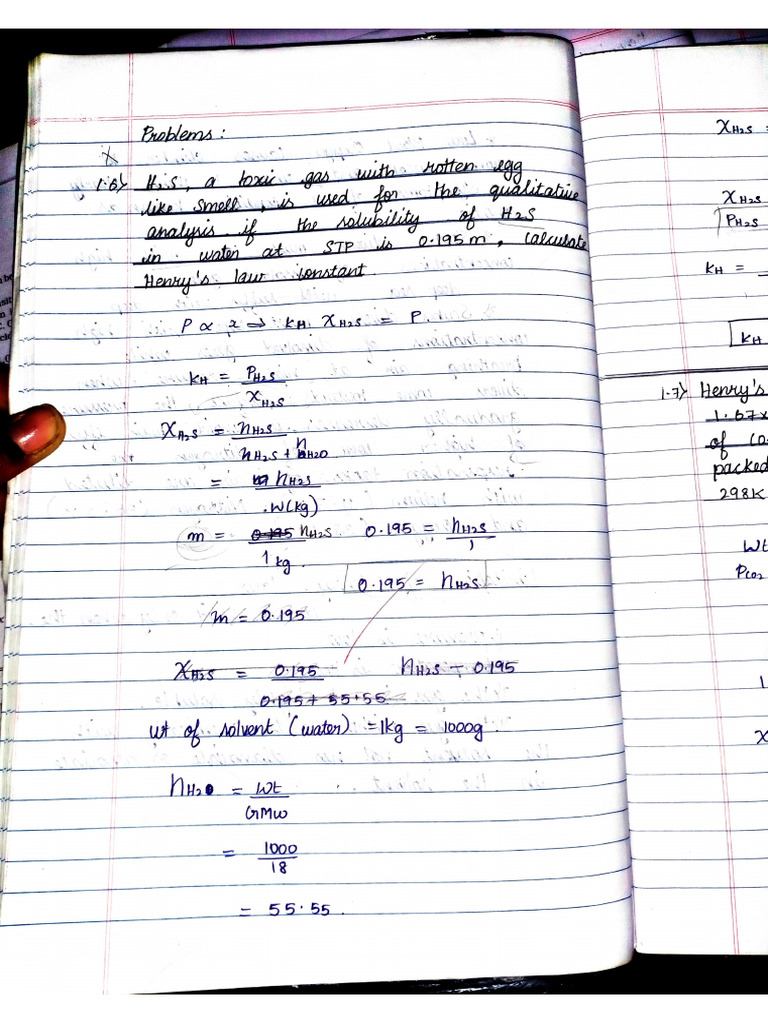 Problems :
x
1.6) H2S, a toxic gas with rotten egg
like smell, is used for the qualitative
analysis if the solubility of H2S
in water at STP is 0.195 m, calculate
Henry's law constant.
P ∝ x ⇒ KH. XH2S = P.
KH = PH2S
XH2S
XH2S = nH2S
nH2S + nH2O
= nH2S
W(kg)
m = 0.195 nH2S 0.195 = nH2S
1 kg. 1
0.195 = nH2S
m = 0.195
XH2S = 0.195 nH2S - 0.195
0.195 + 55.55
wt of solvent (water) = 1kg = 1000g.
nH2O = Wt
GMW
= 1000
18
= 55.55.
XH2S =
XH2S
PH2S
KH =
KH
1.7) Henry's
1.67x
of
packed
298K
Wt
PCO2
1
X